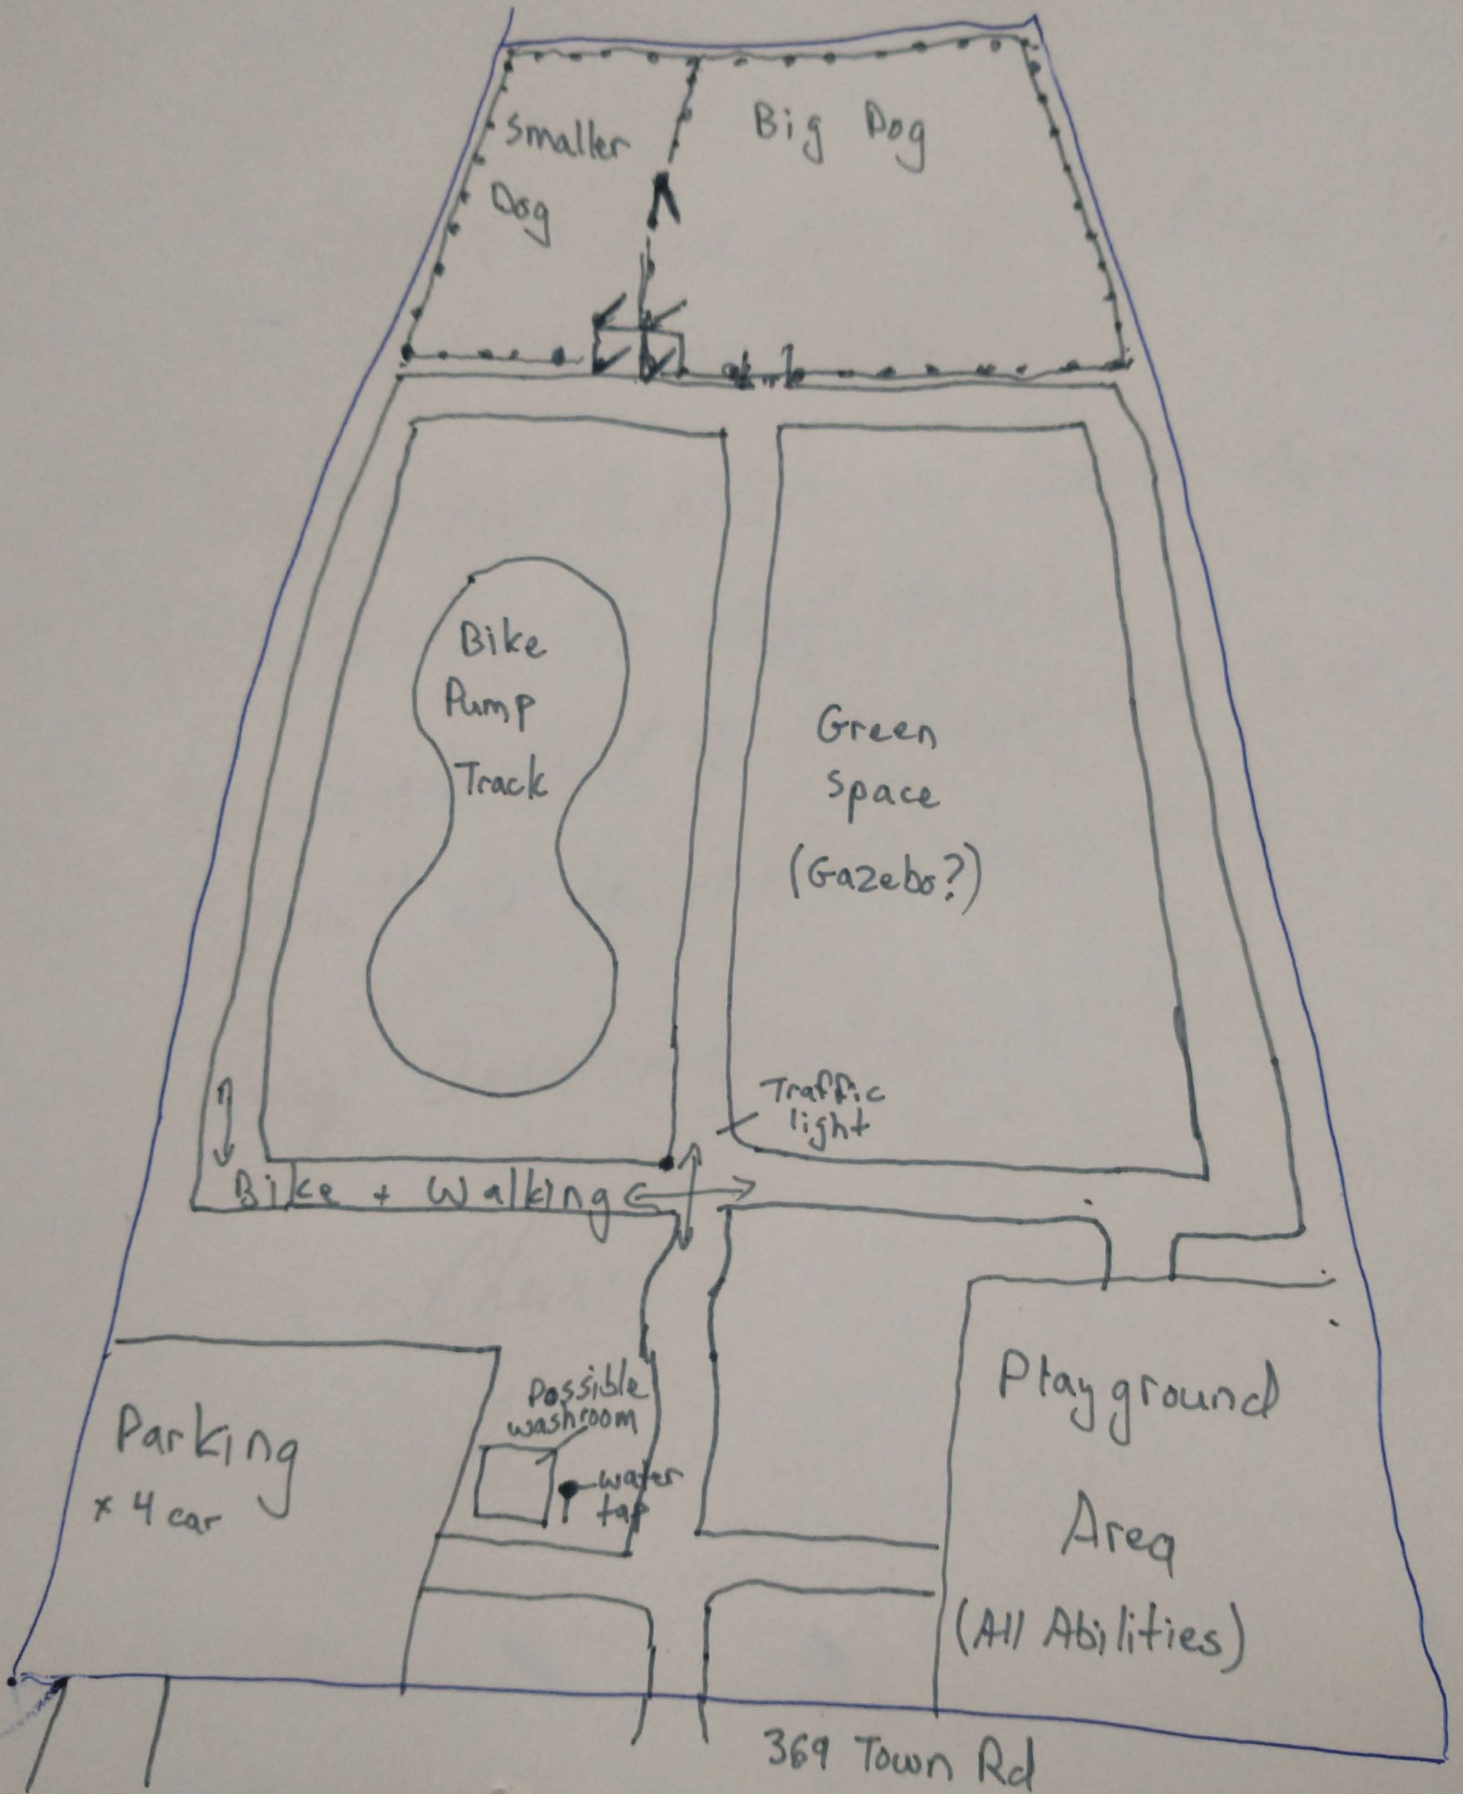 Smaller
Dog
Big Dog
Bike
Pump
Track
Green
Space
(Gazebo?)
Traffic
light
Bike + Walking
Parking
x 4 car
Possible
washroom
water
tap
Playground
Area
(All Abilities)
369 Town Rd